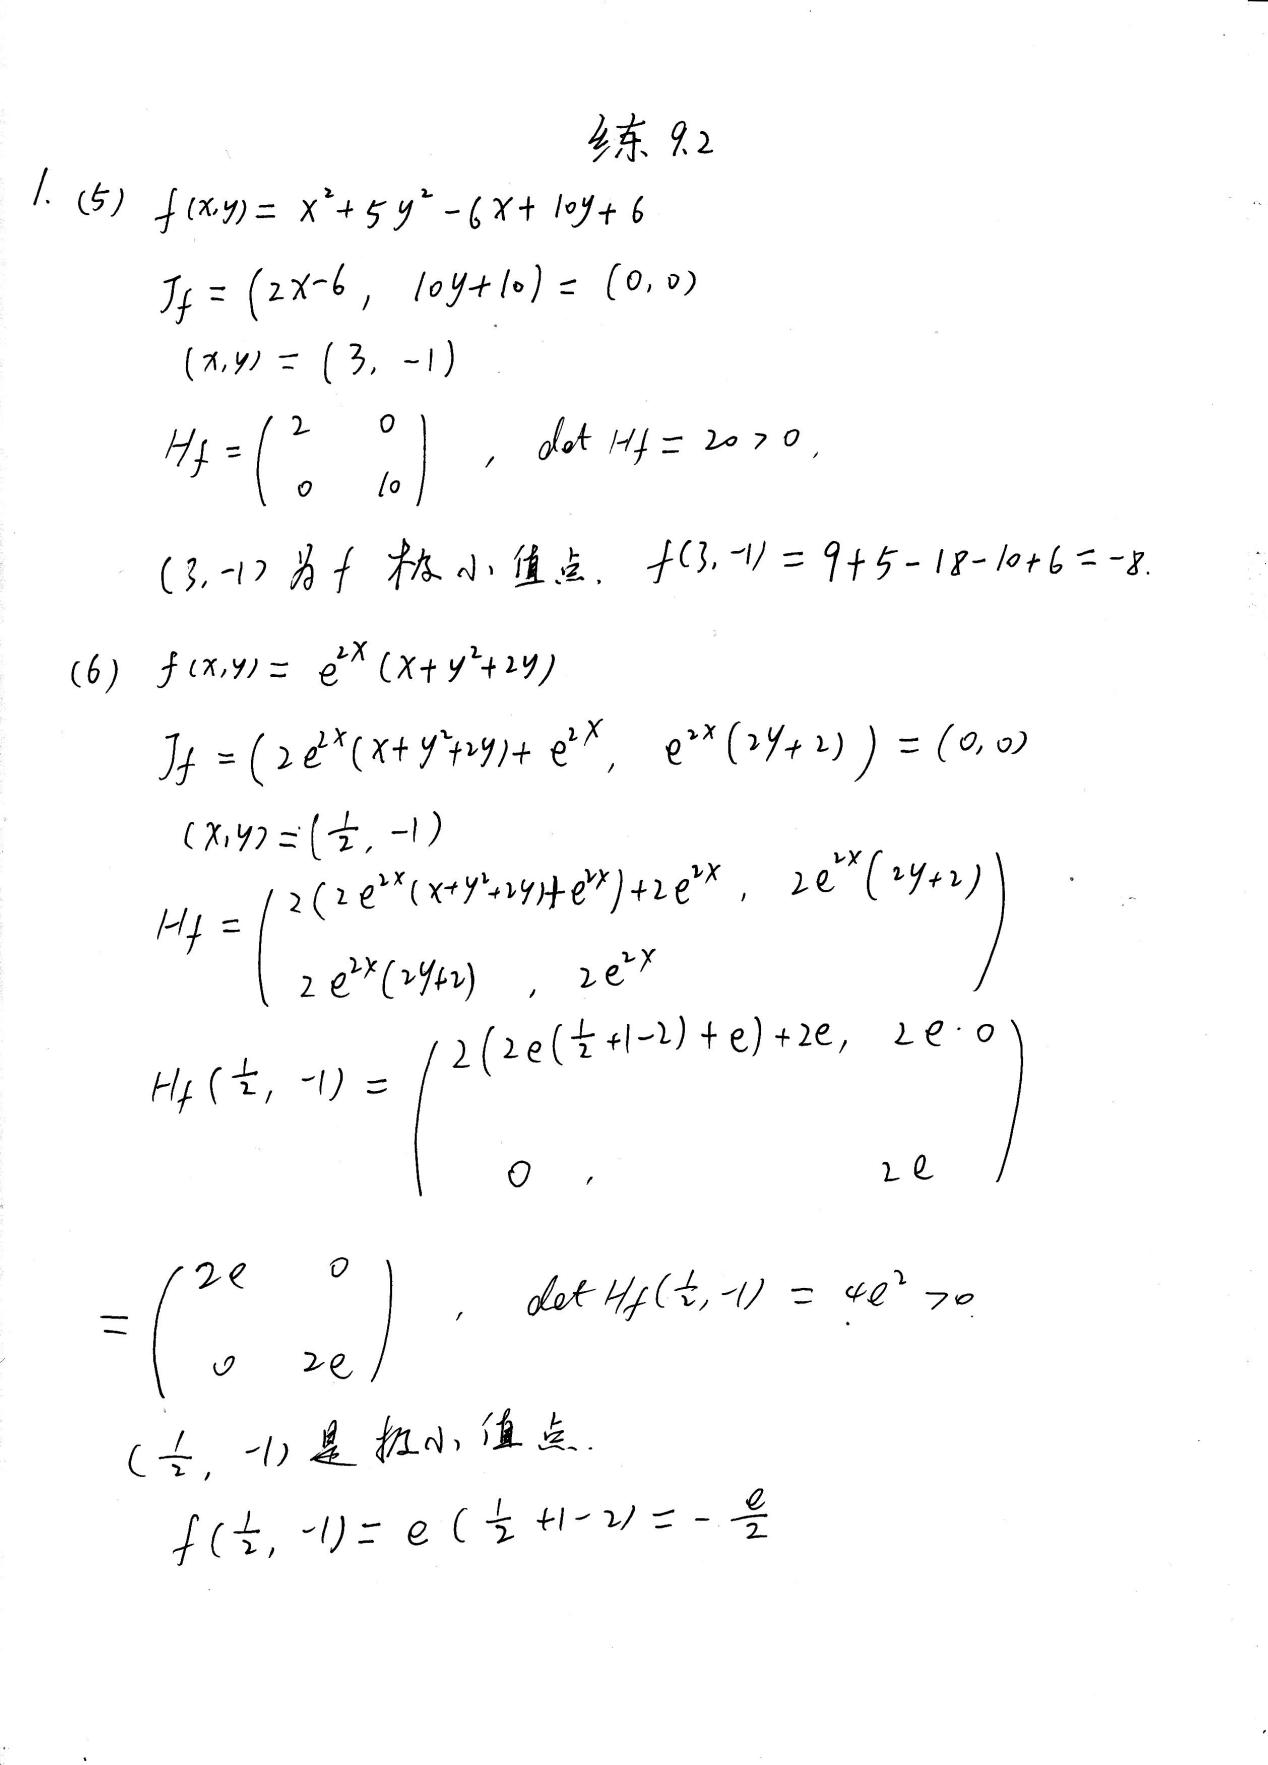 练 9.2
1. (5) f(x,y) = x²+5y²-6x+10y+6
J_f = (2x-6, 10y+10) = (0,0)
(x,y) = (3, -1)
H_f = ( 2 0 ; 0 10 ) , det H_f = 20 > 0,
(3,-1) 为 f 极小值点. f(3,-1) = 9+5-18-10+6 = -8.
(6) f(x,y) = e^{2x}(x+y²+2y)
J_f = (2e^{2x}(x+y²+2y)+e^{2x}, e^{2x}(2y+2)) = (0,0)
(x,y) = (1/2, -1)
H_f = ( 2(2e^{2x}(x+y²+2y)+e^{2x})+2e^{2x}, 2e^{2x}(2y+2)
2e^{2x}(2y+2) , 2e^{2x} )
H_f(1/2, -1) = ( 2(2e(1/2+1-2)+e)+2e, 2e·0
0 , 2e )
= ( 2e 0 ; 0 2e ) , det H_f(1/2,-1) = 4e² >0.
(1/2, -1) 是极小值点.
f(1/2, -1) = e(1/2+1-2) = -e/2